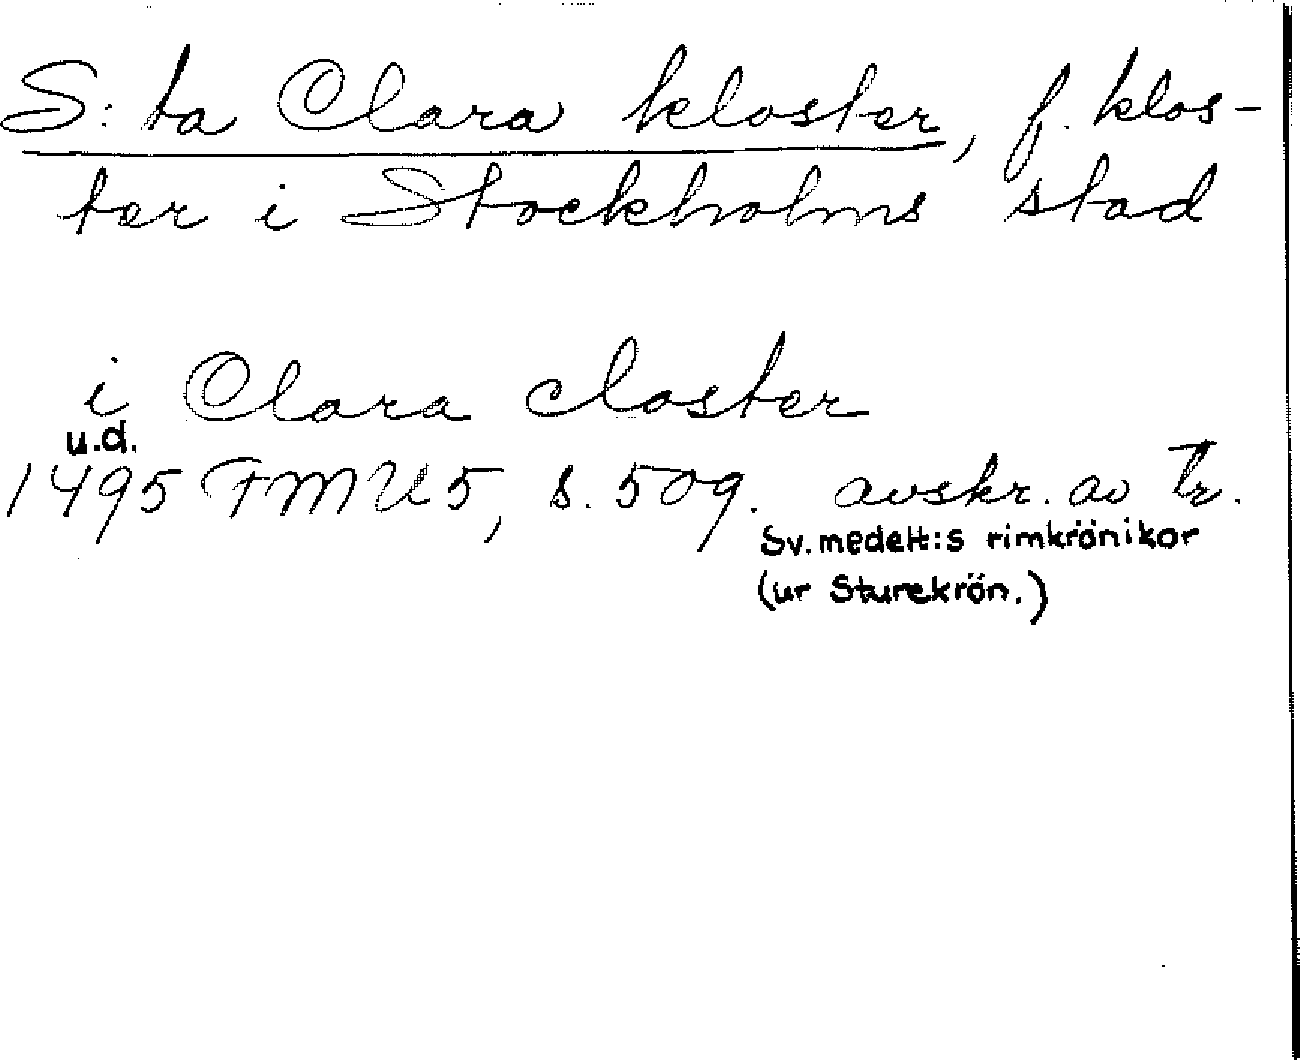 S:ta Clara kloster, f. klos-
ter i Stockholms stad
i Clara closter
u.d.
1495 FMU 5, s. 509. avskr. av Tr.
Sv. medelt:s rimkrönikor
(ur Sturekrön.)